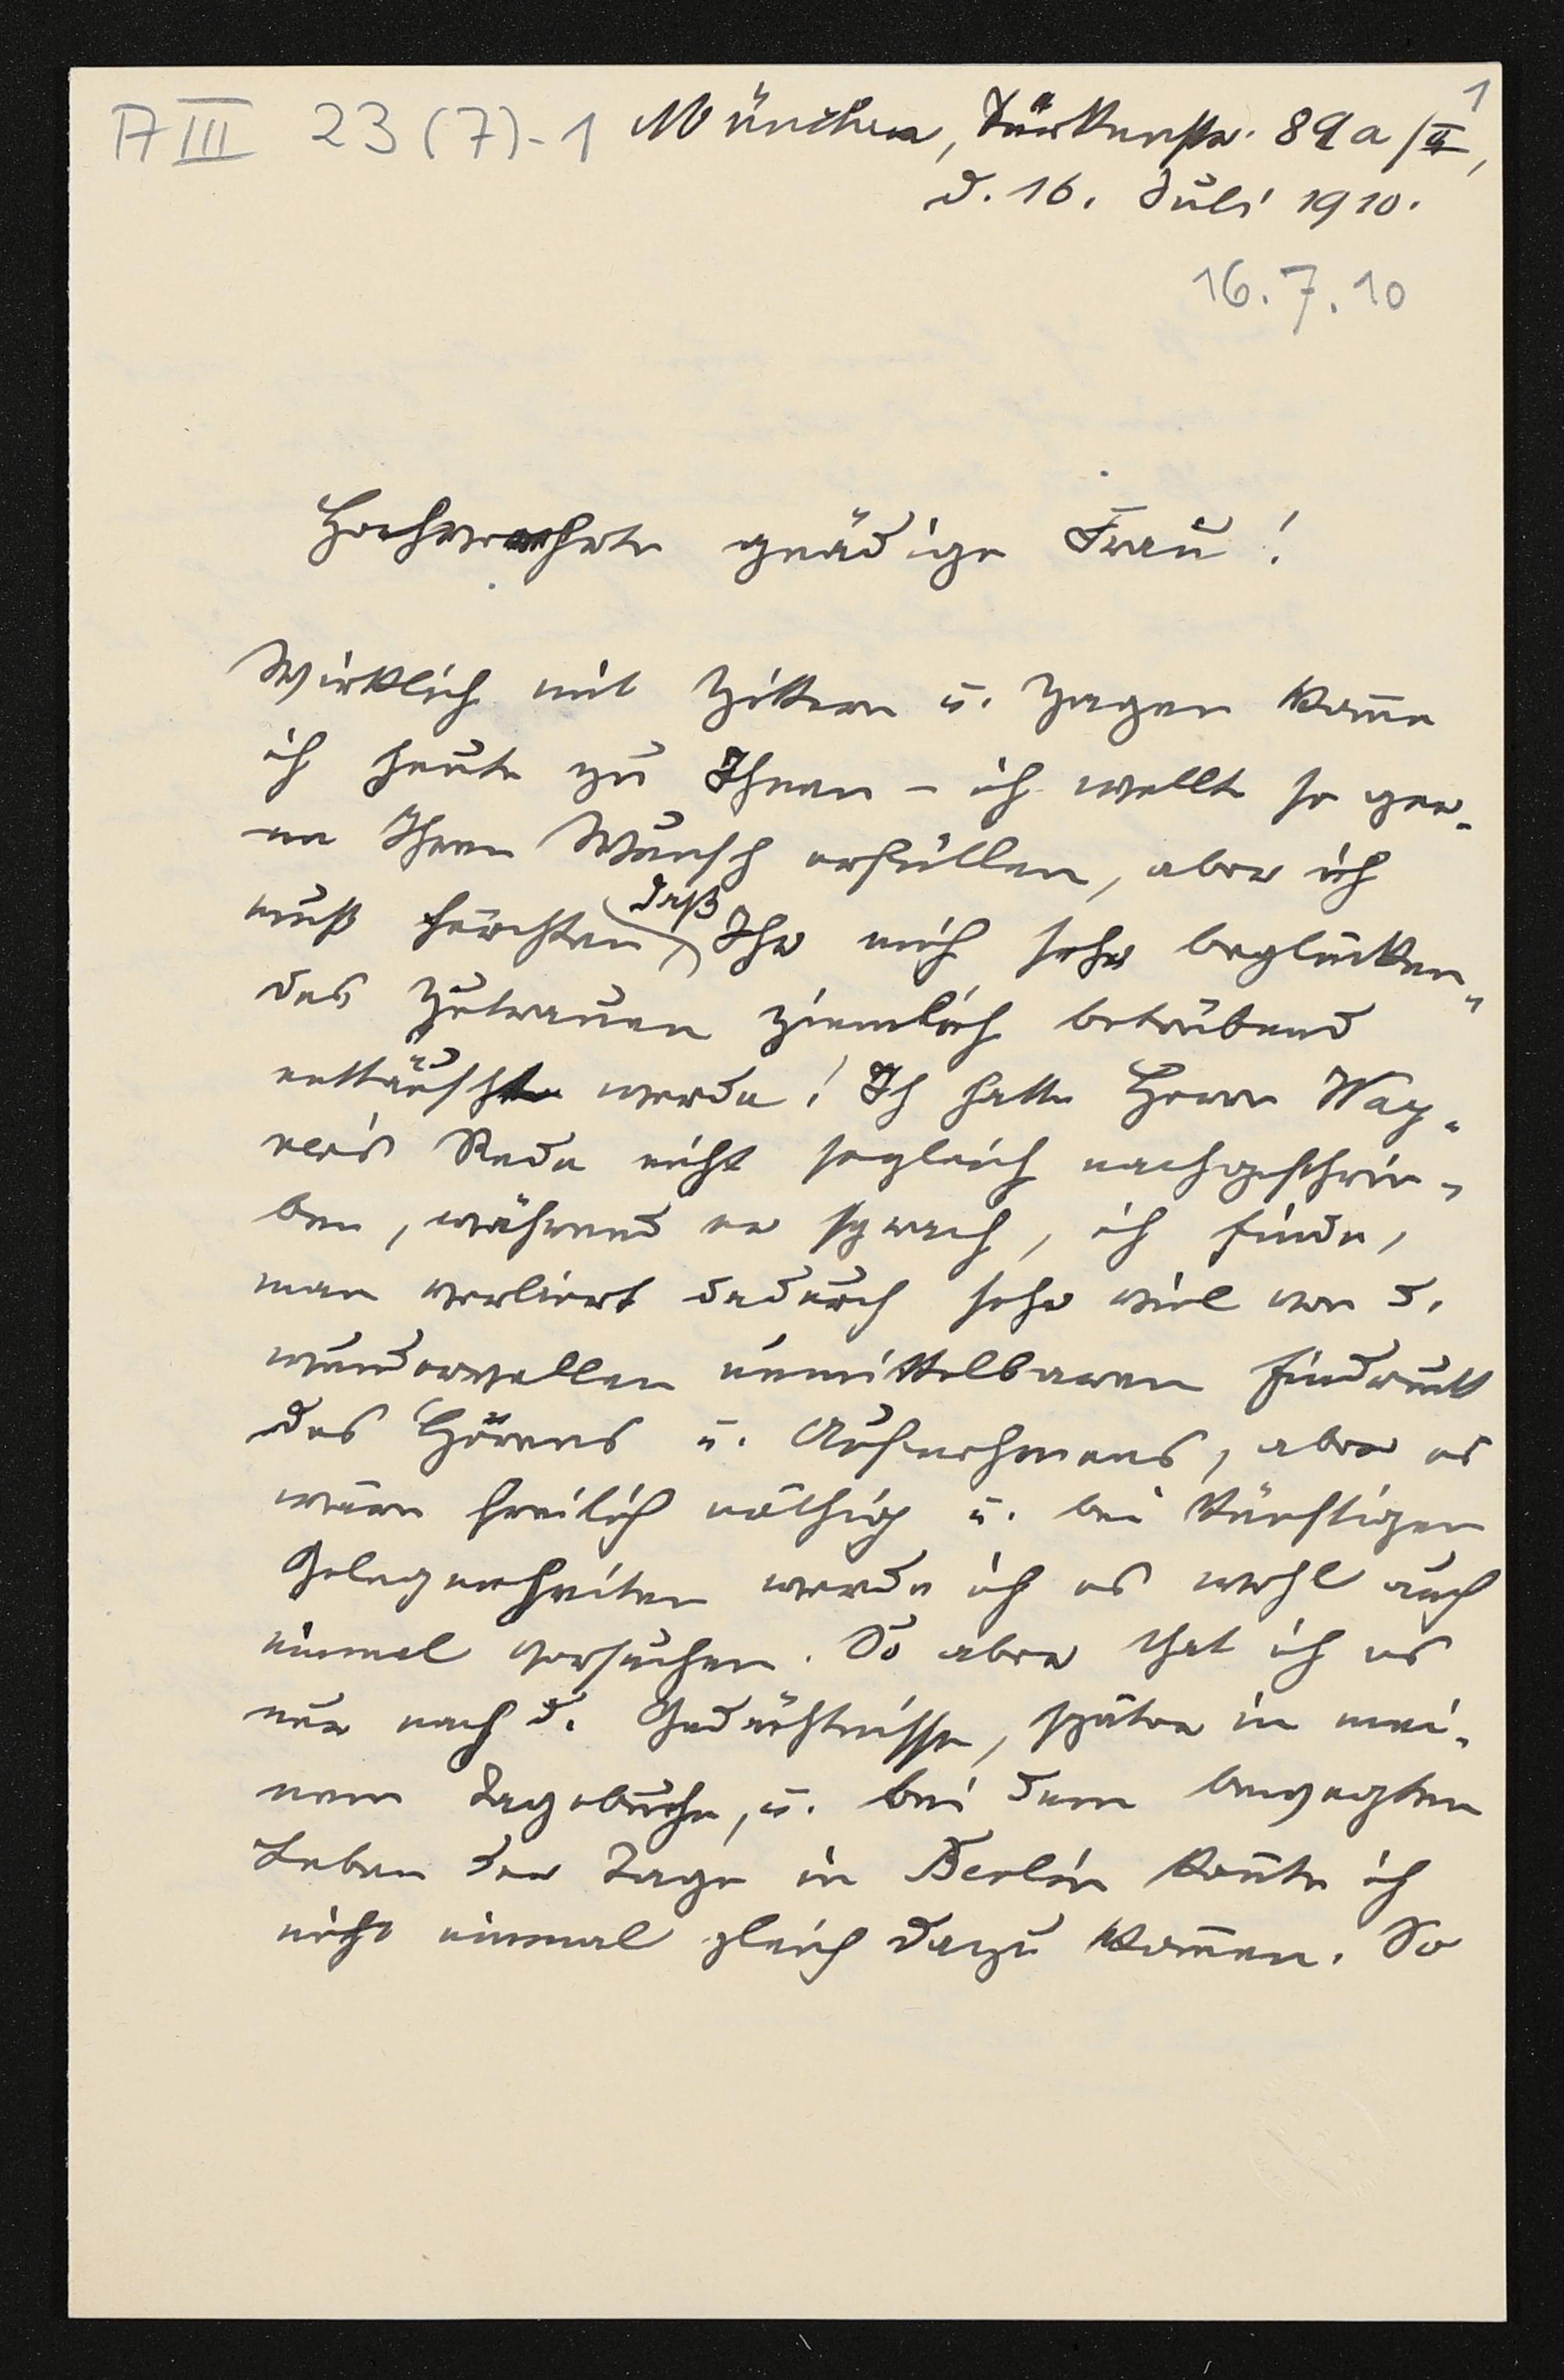 A III 23 (7)-1 München, Türkenstr. 89a/II,
1
d. 16. Juli 1910.
16.7.10
Hochverehrte gnädige Frau!
Wirklich mit Zittern u. Zagen kom̅e
ich heute zu Ihnen – ich wollte so ger-
ne Ihren Wunsch erfüllen, aber ich
muß fürchten daß Ihr mich sehr beglücken-
des Zutrauen ziemlich betrübend
enttäuscht werde! Ich hatte Herrn
Rede nicht sogleich nachgeschrie-
ben, während er sprach, ich finde,
man verliert dadurch sehr viel von d.
wundervollen unmittelbaren Eindruck
des Hörens u. Aufnehmens, aber es
wäre freilich nöthig u. bei künftigen
Gelegenheiten werde ich es wohl auch
einmal versuchen. So aber that ich es
nur nach d. Gedächtnisse, später in mei-
nem Tagebuche, u. bei dem bewegten
Leben der Tage in Berlin kon̅te ich
nicht einmal gleich dazu kom̅en. So